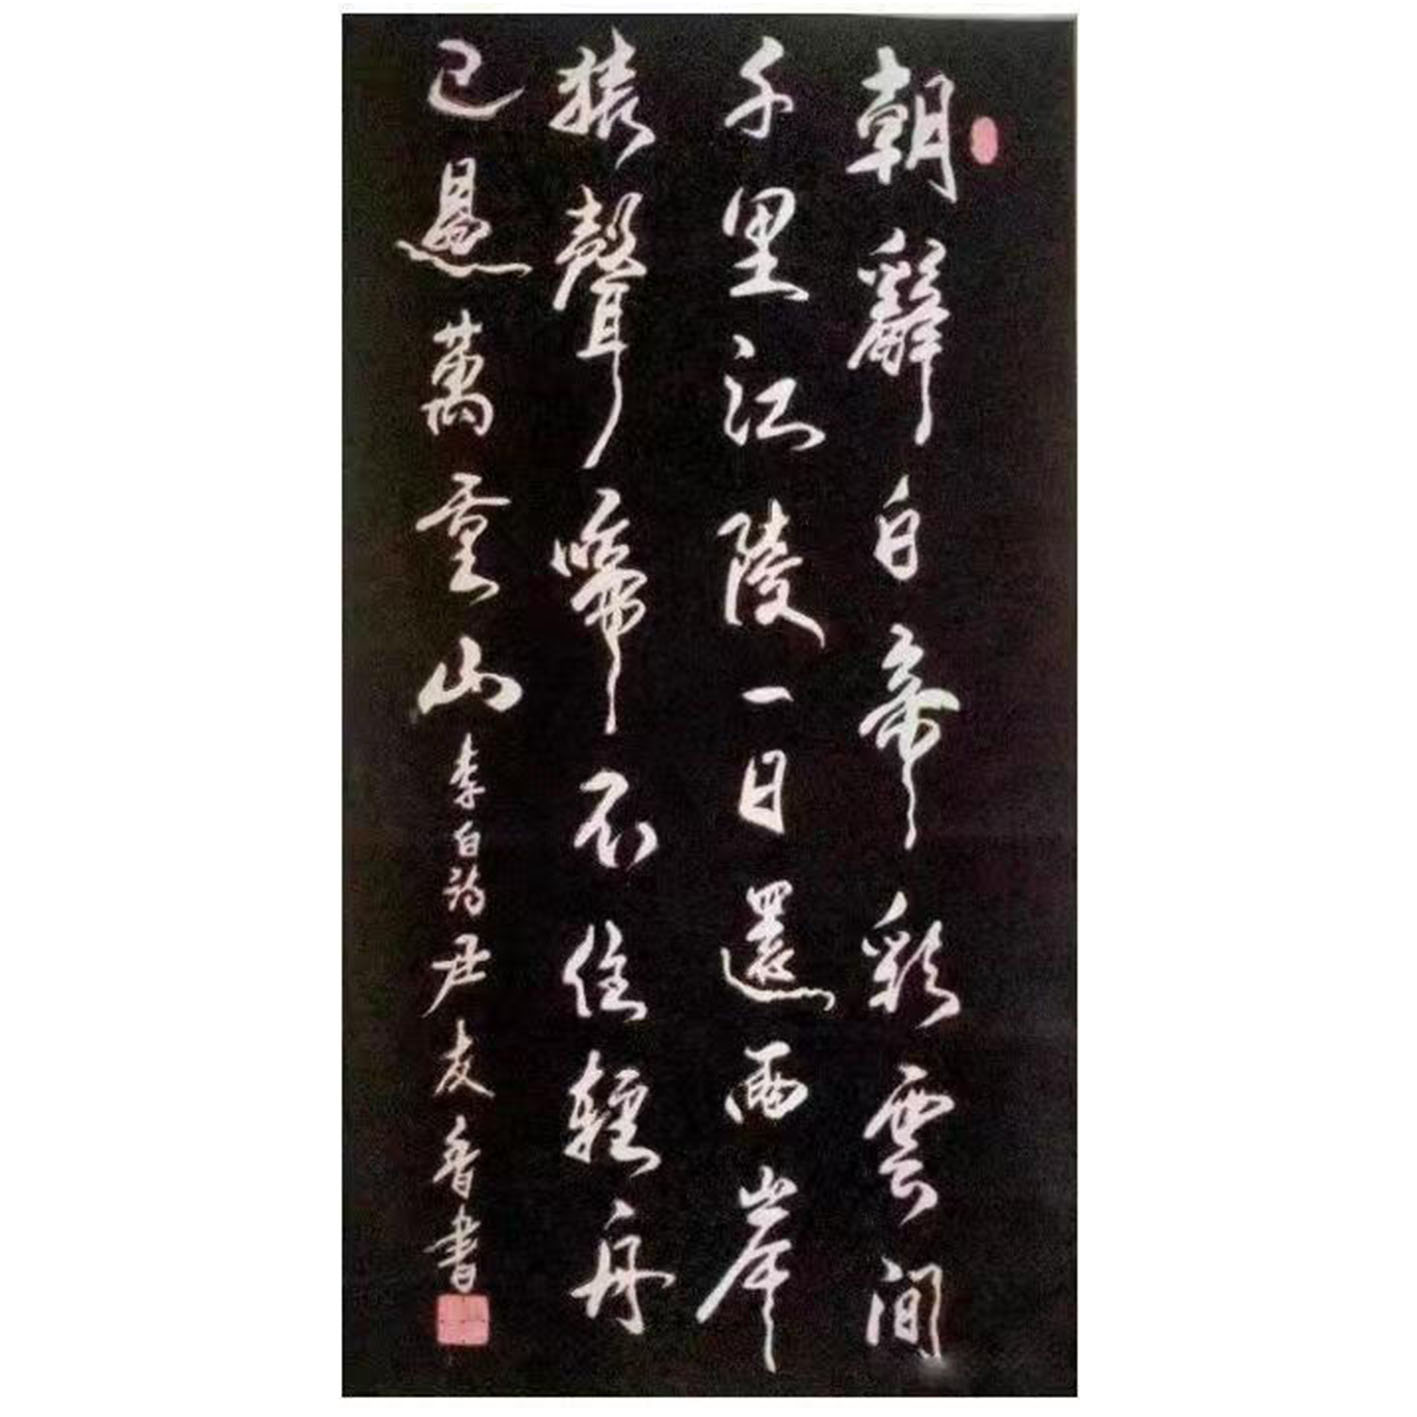 朝辭白帝彩雲間
千里江陵一日還兩岸
猿聲啼不住輕舟
已過萬重山李白詩尹友魯書